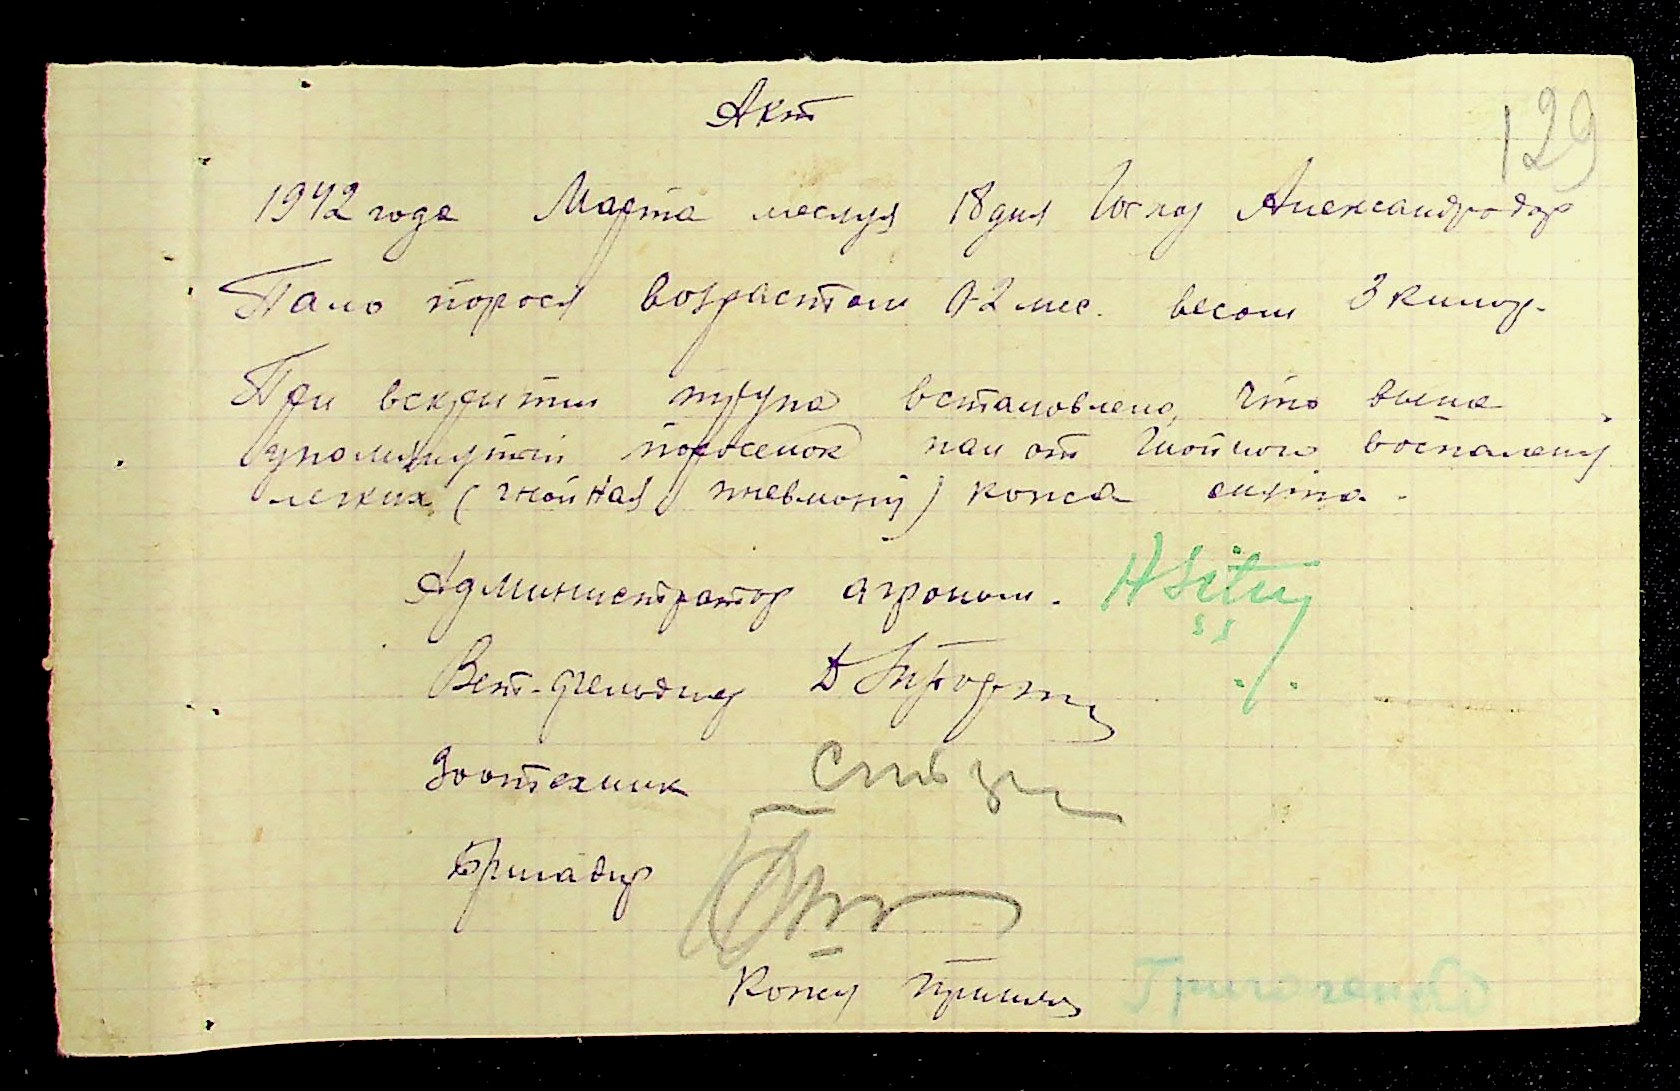 Акт
129
1942 года Марта месяця 18 дня Госхоз Александродар
Пало порося возрастом 0-2 мес. весом 3 килог.
При вскрытии трупа встановлено, что выше
упомянутый поросенок пал от гнойного воспалення
легких (гнойная пневмония) кожа снята.
Администратор агроном.
Вет-фельдшер
Зоотехник
Бригадир
Кожу принял Григоренко